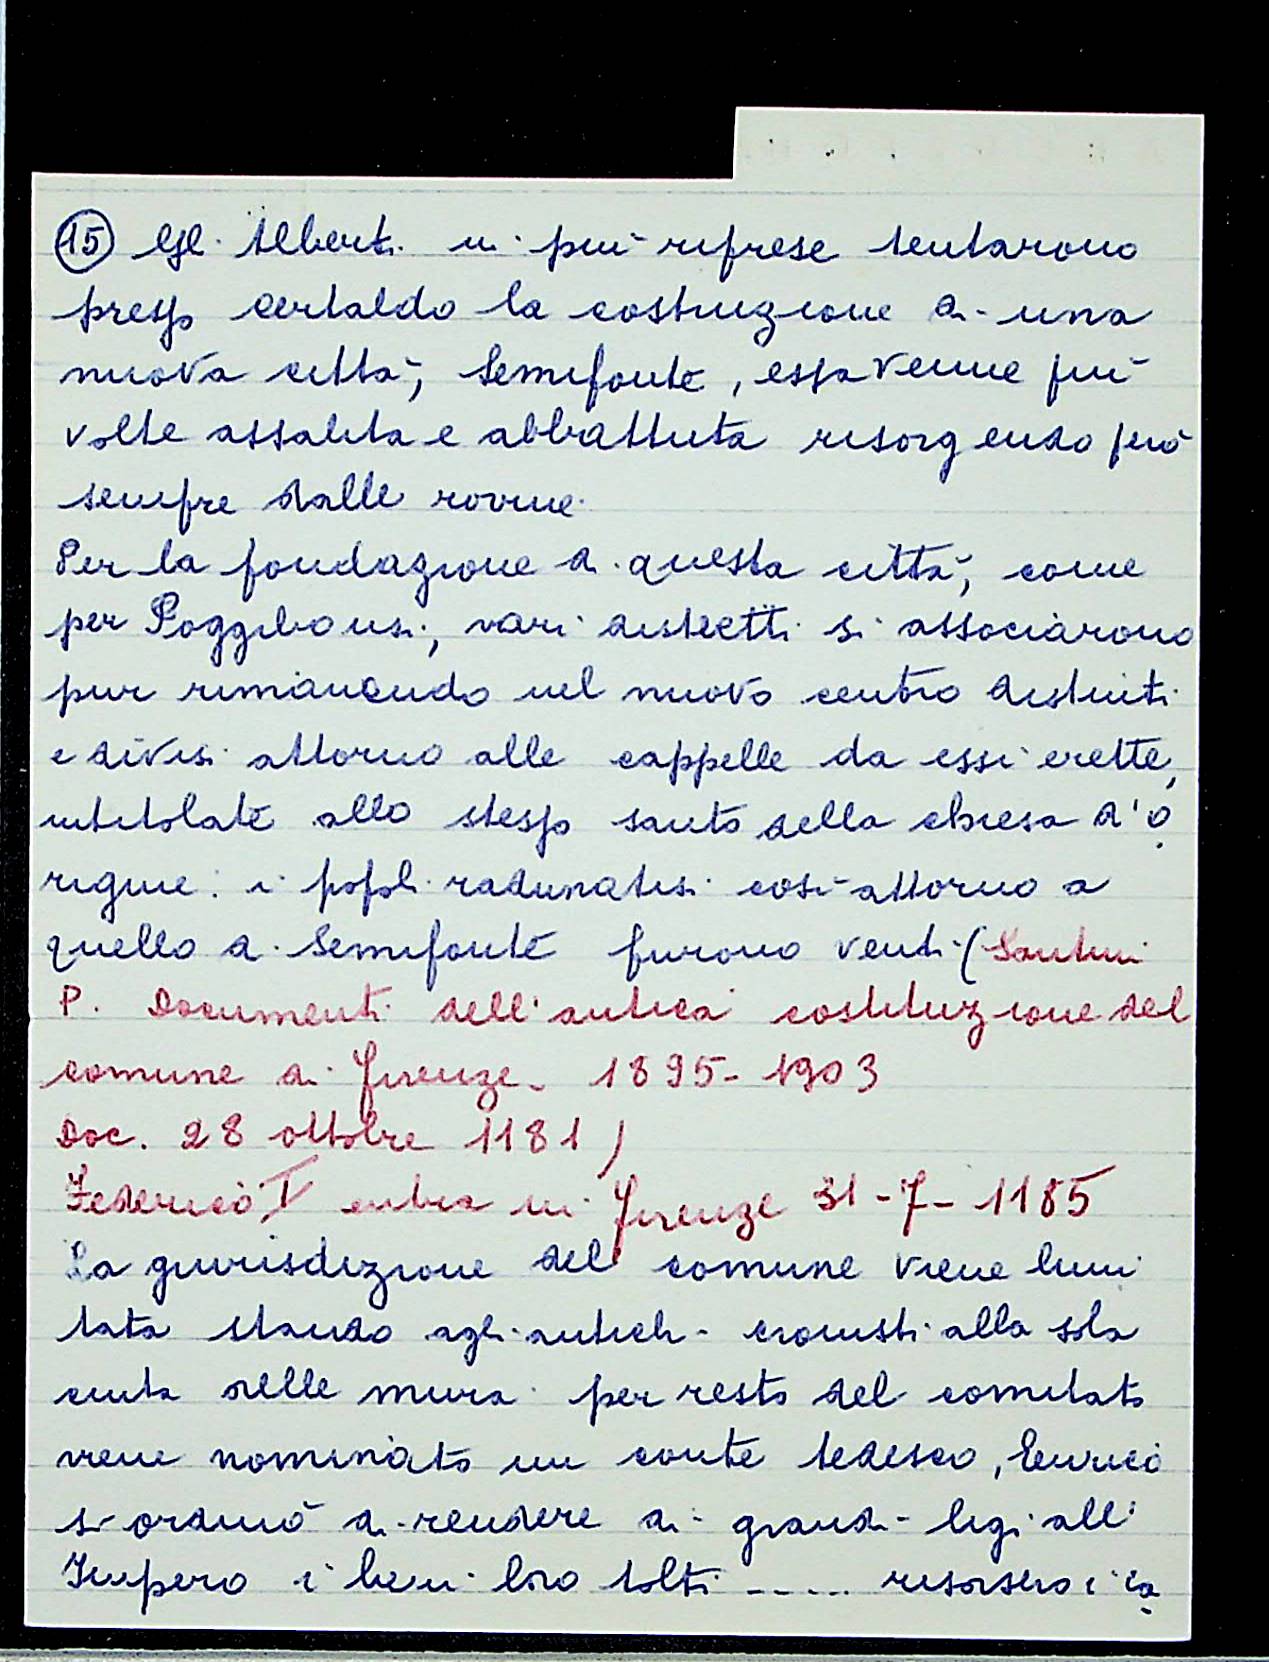 15 Gli Alberti in più riprese tentarono
presso Certaldo la costruzione di una
nuova città, Semifonte, essa venne più
volte assalita e abbattuta risorgendo però
sempre dalle rovine.
Per la fondazione di questa città, come
per Poggibonsi, vari distretti si associarono
pur rimanendo nel nuovo centro distinti
e divisi attorno alle cappelle da essi erette,
intitolate allo stesso santo della chiesa d'o
rigine: i popoli radunatisi così attorno a
quello di Semifonte furono venti (Santini
P. Documenti dell'antica costituzione del
comune di Firenze. 1895-1903
Doc. 28 ottobre 1181)
Federico I entra in Firenze 31-7-1185
La giurisdizione del comune viene limi
tata stando agli antichi cronisti alla sola
cinta delle mura per resto del comitato
viene nominato un conte tedesco, Enrico
si ordinò di rendere ai grandi ligi all'
Impero i beni loro tolti ..... risorsero i ca